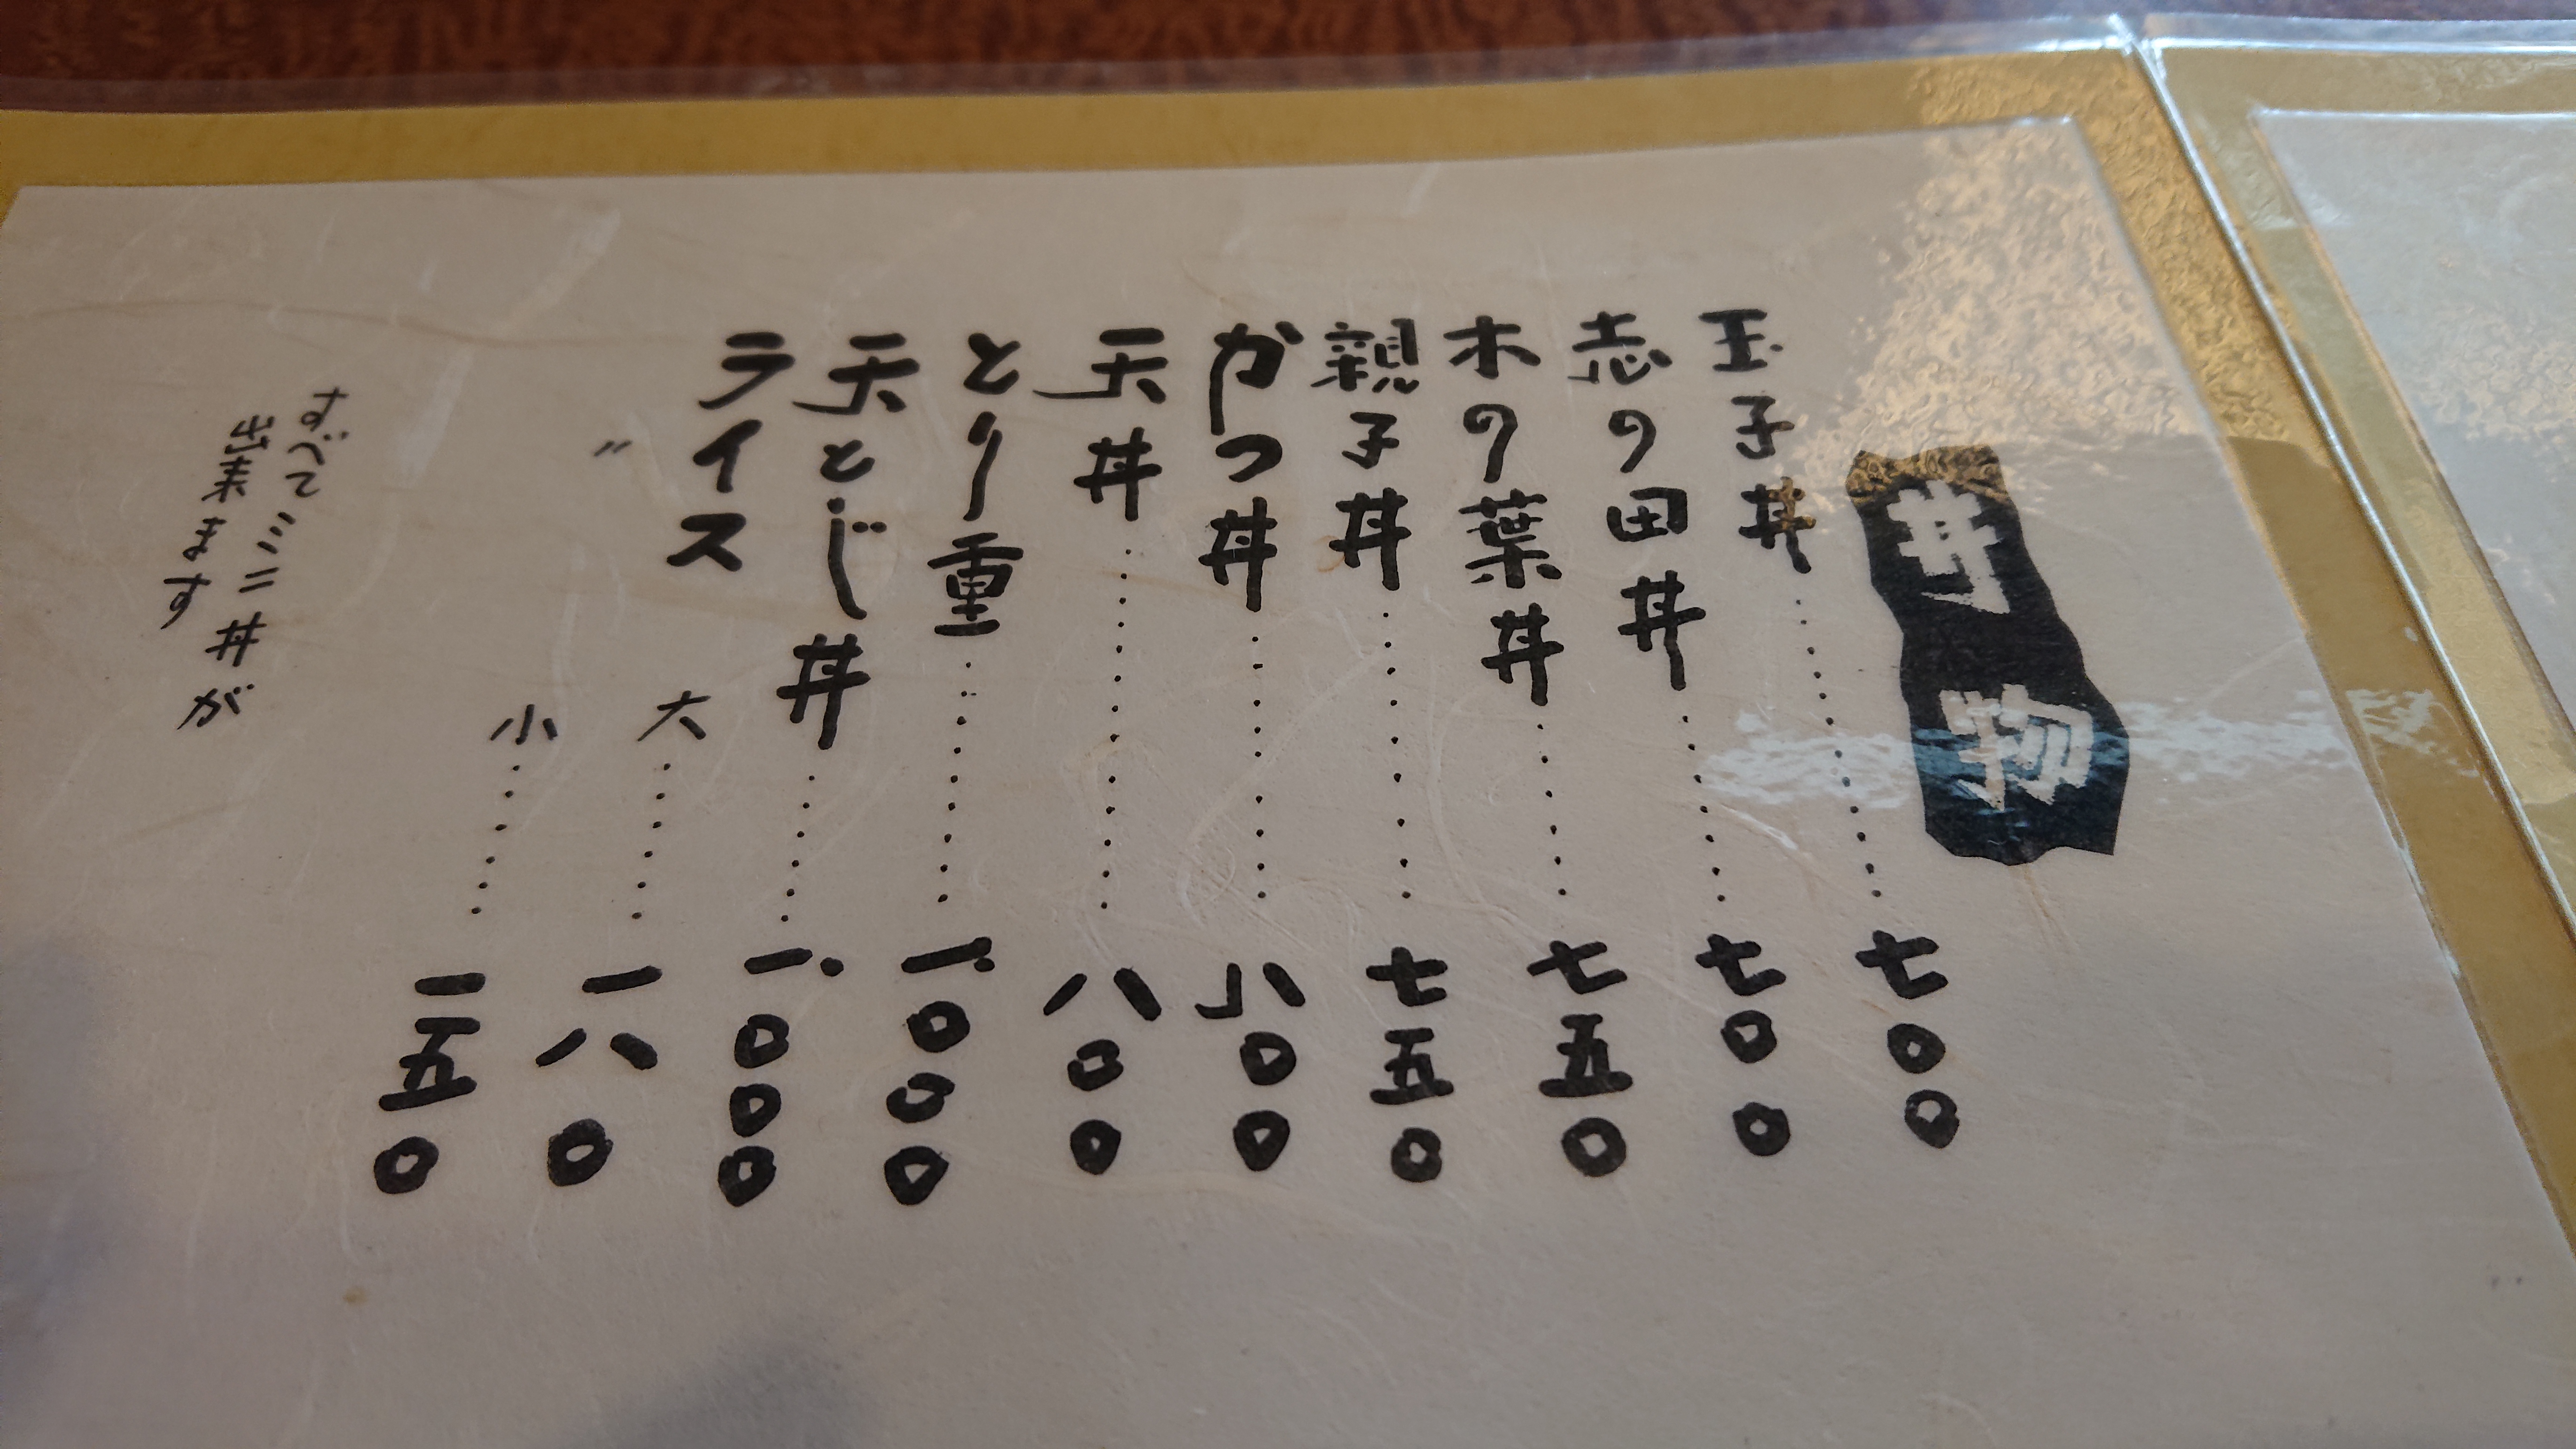 丼物
玉子丼…………七〇〇
志の田丼…………七〇〇
木の葉丼…………七五〇
親子丼…………七五〇
かつ丼…………八〇〇
天丼…………八〇〇
とり重…………一、〇〇〇
天とじ丼…………一、〇〇〇
ライス 大…………一八〇
〃 小…………一五〇
すべてミニ丼が
出来ます